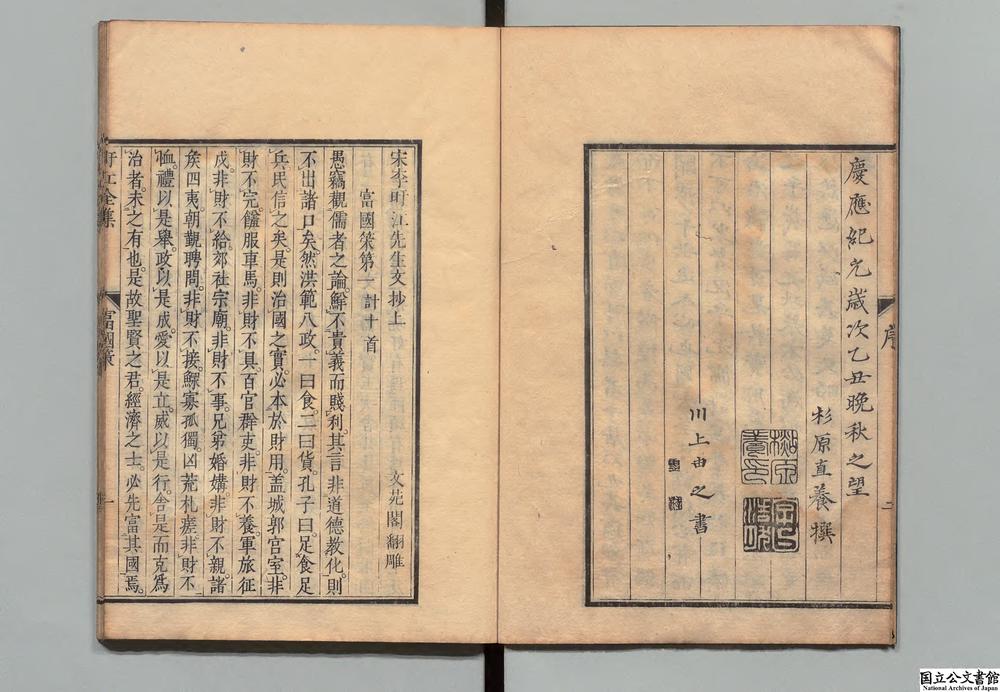 慶應紀元歲次乙丑晩秋之望
杉原直養撰
川上由之書
序
二
宋李盱江先生文抄上
文苑閣翻雕
富國策第一 計十首
愚竊觀儒者之論。鮮不貴義而賤利。其言非道德教化。則
不出諸口矣。然洪範八政。一曰食。二曰貨。孔子曰。足食足
兵。民信之矣。是則治國之實。必本於財用。蓋城郭宮室。非
財不完。饈服車馬。非財不具。百官群吏。非財不養。軍旅征
戍。非財不給。郊社宗廟。非財不事。兄弟婚媾。非財不親。諸
矦四夷。朝覲聘問。非財不接。鰥寡孤獨。凶荒札瘥。非財不
恤。禮以是舉。政以是成。愛以是立。威以是行。舍是而克爲
治者。未之有也。是故聖賢之君。經濟之士。必先富其國焉。
盱江全集
富國策
一
国立公文書館
National Archives of Japan